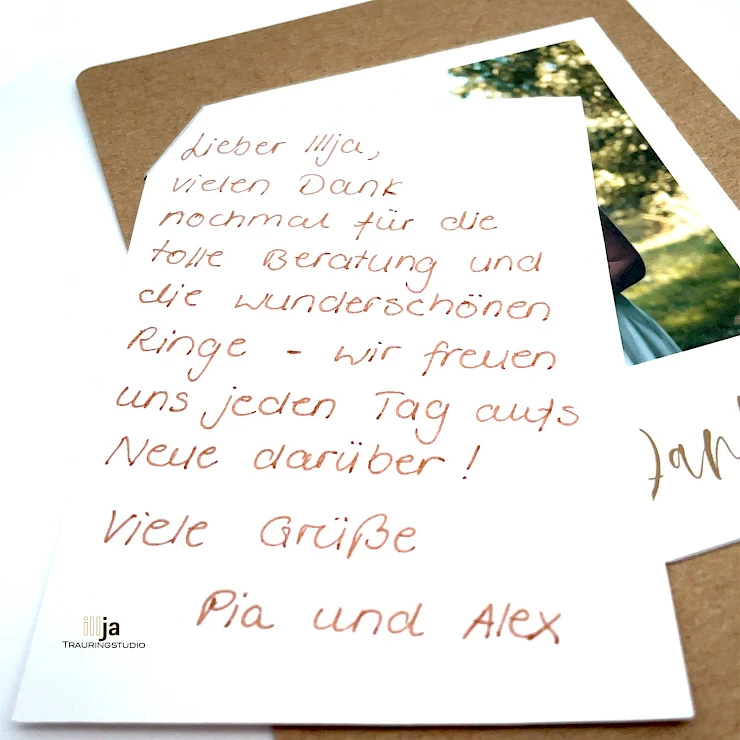 Lieber Illja,
vielen Dank
nochmal für die
tolle Beratung und
die wunderschönen
Ringe - wir freuen
uns jeden Tag aufs
Neue darüber!
Viele Grüße
Pia und Alex
illja
TRAURINGSTUDIO